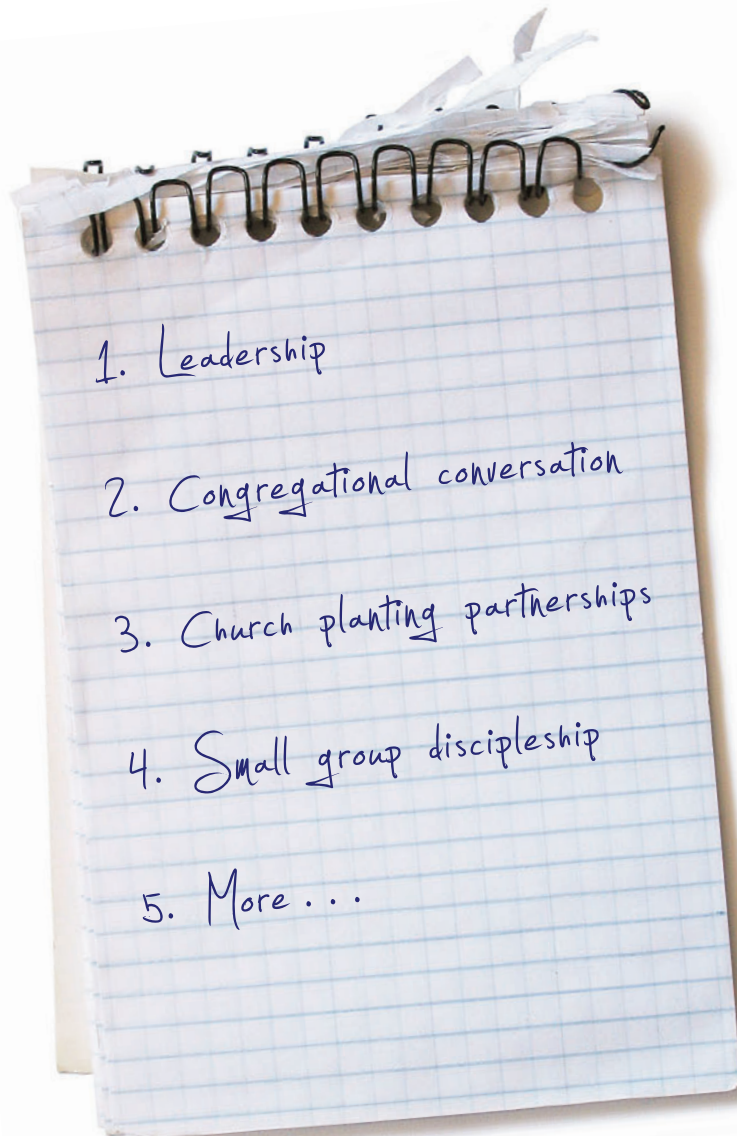 1. Leadership
2. Congregational conversation
3. Church planting partnerships
4. Small group discipleship
5. More . . .